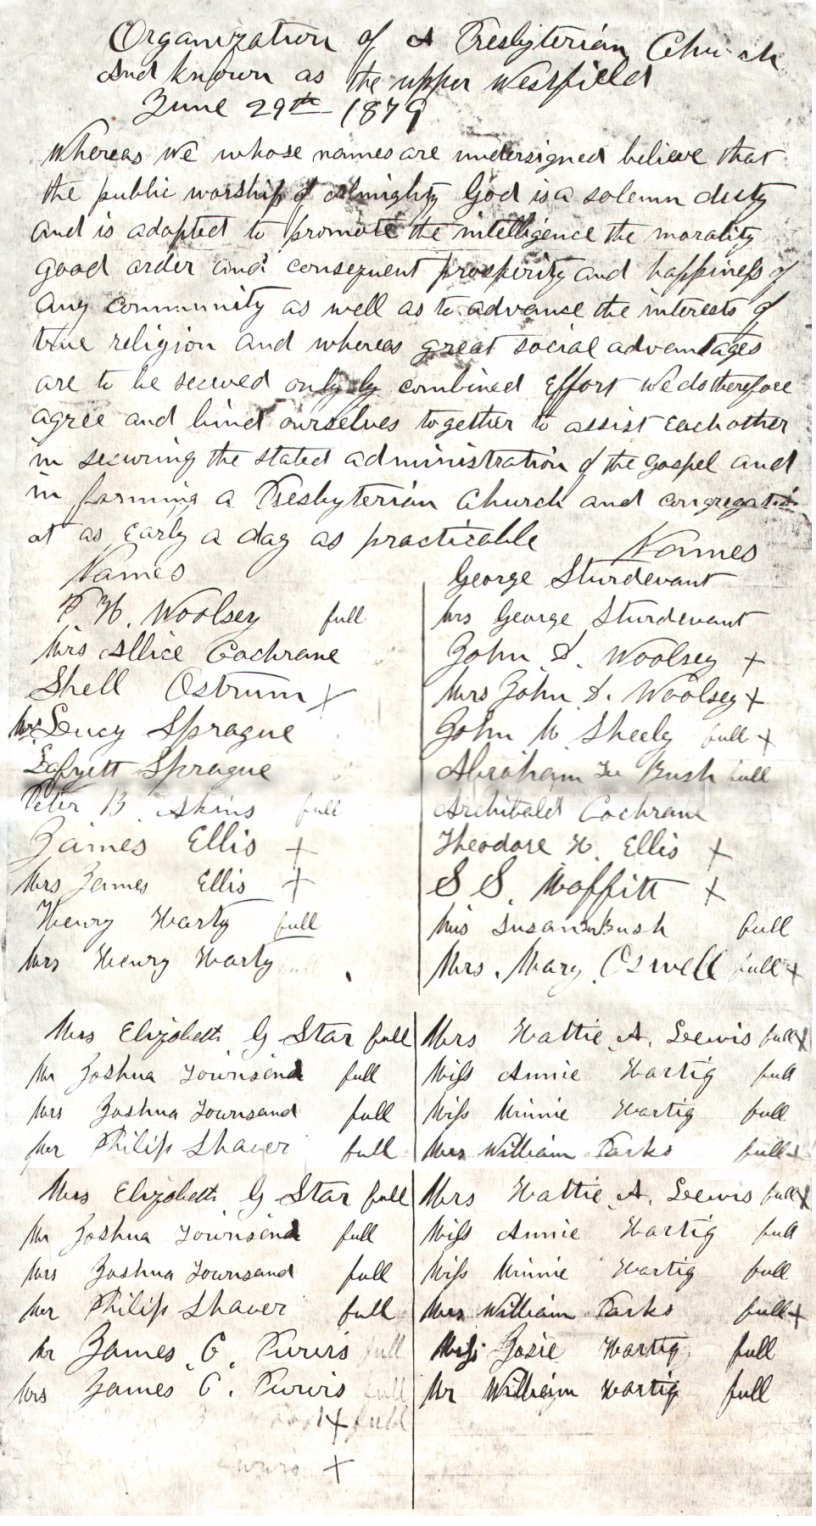 Organization of A Presbyterian Church
And known as the upper Westfield
June 29th 1879
Whereas we whose names are undersigned believe that
the public worship of Almighty God is a solemn duty
and is adapted to promote the intelligence the morality
good order and consequent prosperity and happiness of
any community as well as to advance the interests of
true religion and whereas great social advantages
are to be secured only by combined effort we do therefore
agree and bind ourselves together to assist each other
in securing the stated administration of the Gospel and
in forming a Presbyterian Church and congregation
at as early a day as practicable
Names
P. H. Woolsey full
Mrs Allice Cochrane
Shell Ostrum x
Mrs Lucy Sprague
Lafyett Sprague
Peter B. Akins full
James Ellis +
Mrs James Ellis +
Henry Harty full
Mrs Henry Harty full
Names
George Sturdevant
Mrs George Sturdevant
John S. Woolsey +
Mrs John S. Woolsey +
John W. Sheely full +
Abraham Bush full
Archibald Cochrane
Theodore H. Ellis +
S S. Moffitt +
Mrs Susan Bush full
Mrs. Mary Oswell full +
Mrs Elizabeth G Star full
Mr Joshua Townsend full
Mrs Joshua Townsand full
Mr Philip Shaver full
Mrs Hattie A. Lewis full x
Miss Annie Hartig full
Miss Minnie Hartig full
Mrs William Parks full +
Mrs Elizabeth G Star full
Mr Joshua Townsend full
Mrs Joshua Townsand full
Mr Philip Shaver full
Mr James C. Purvis full
Mrs James C. Purvis full
+ full
+
Mrs Hattie A. Lewis full x
Miss Annie Hartig full
Miss Minnie Hartig full
Mrs William Parks full +
Miss Josie Hartig full
Mr William Hartig full